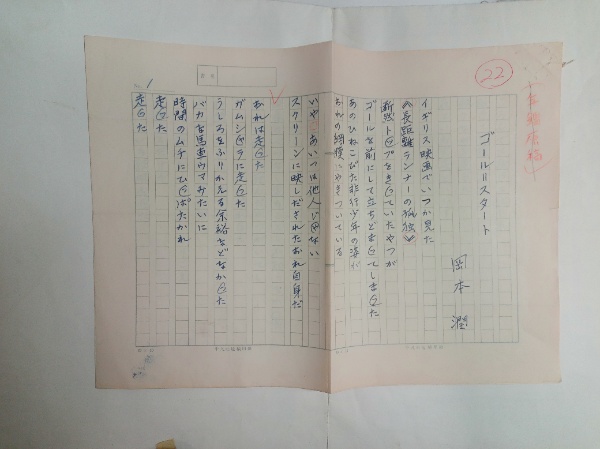 22
ゴール=スタート
岡本 潤
イギリス映画でいつか見た
《長距離ランナーの孤独》
断然トップをきっていたやつが
ゴールを前にして立ちどまってしまった
あのひねこびた非行少年の姿が
おれの網膜にやきついている
いや あいつは他人じゃない
スクリーンに映しだされたおれ自身だ
おれは走った
ガムシャラに走った
うしろをふりかえる余裕などなかった
バカな馬車ウマみたいに
時間のムチにひっぱたかれ
走った
走った
1